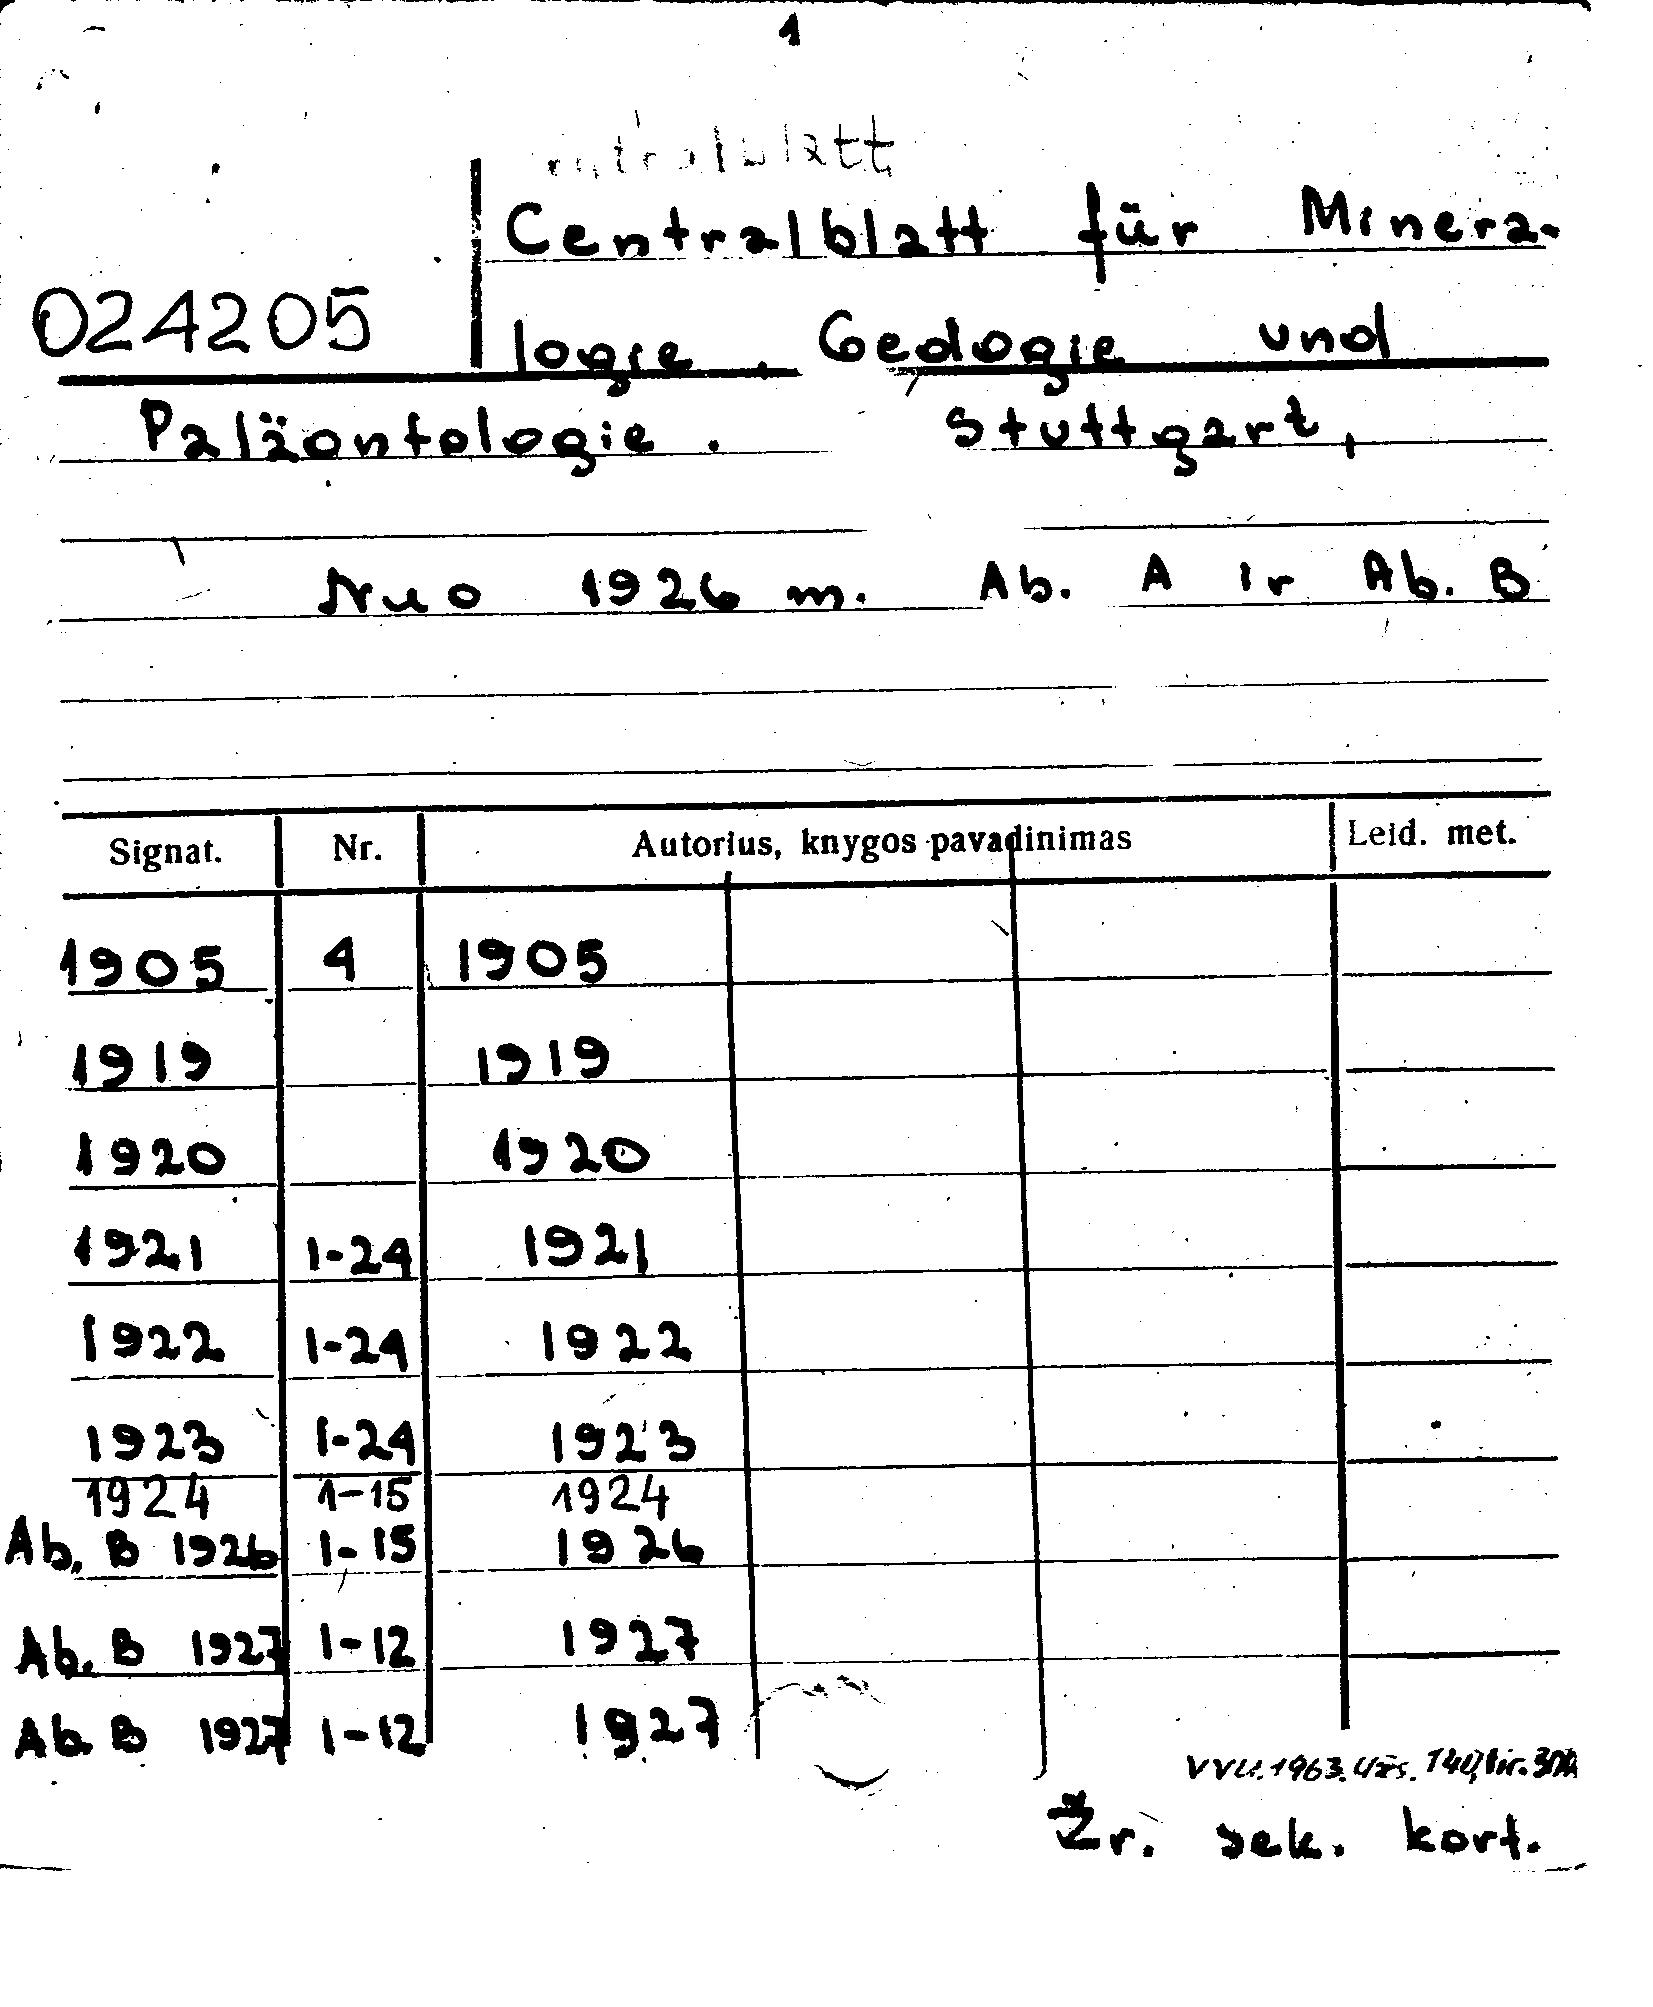 1
Centralblatt für Minera-
024205
logie. Geologie und
Paläontologie. Stuttgart,
Nuo 1926 m. Ab. A ir Ab. B
Signat. Nr. Autorius, knygos pavadinimas Leid. met.
1905 4 1905
1919 1919
1920 1920
1921 1-24 1921
1922 1-24 1922
1923 1-24 1923
1924 1-15 1924
Ab. B 1926 1-15 1926
Ab. B 1927 1-12 1927
Ab. B 1927 1-12 1927
VVU. 1963. Užs. 140, tir.
Žr. sek. kort.